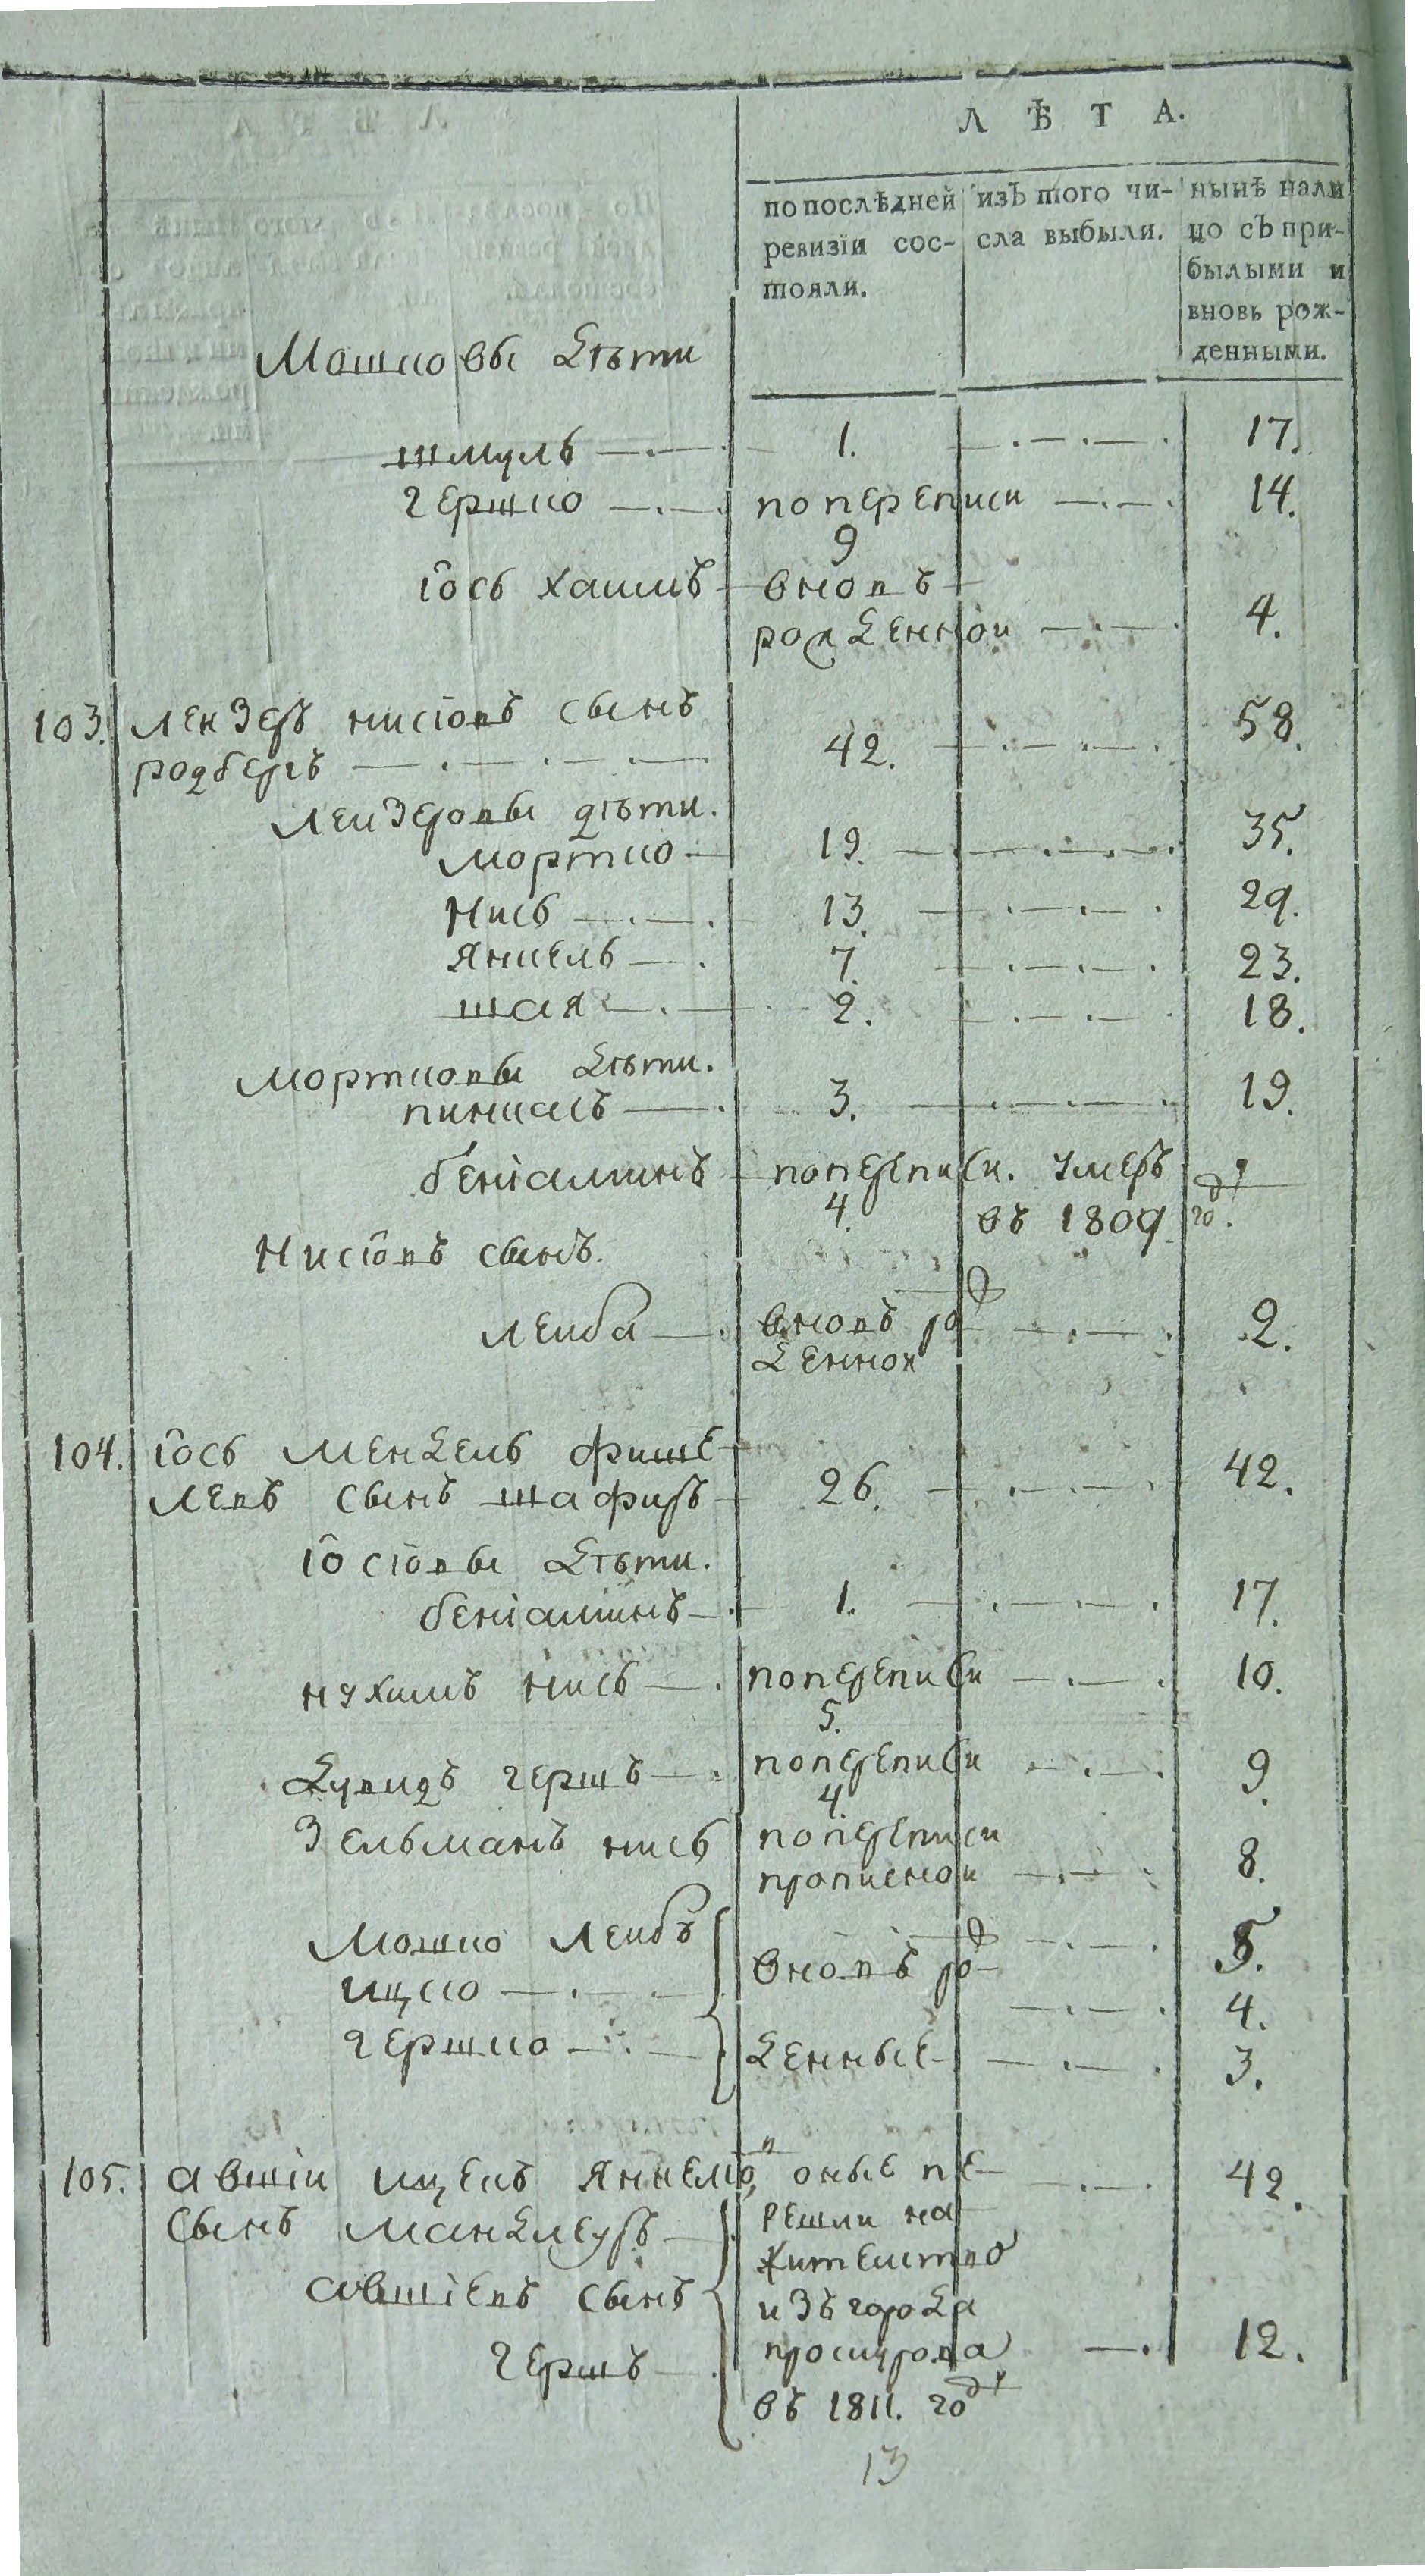 ЛѢТА.
по послѣдней ревизіи состояли.
изЪ того числа выбыли.
нынѣ налицо сЪ прибылыми и вновь рожденными.
Мошковы дѣти
шмуль 1. 17.
гершко по переписи 9 14.
іось хаимъ вновъ рожденной 4.
103. лейзеръ нисіовъ сынъ
родбергъ 42. 58.
лейзеровы дѣти.
мортко 19. 35.
Нись 13. 29.
янкель 7. 23.
шая 2. 18.
мортковы дѣти.
пинкасъ 3. 19.
беніаминъ по переписи. 4. умеръ въ 1809 году.
Нисіовъ сынъ.
лейба вновъ рожденной 2.
104. іось мендель фише-
левъ сынъ шафиръ 26. 42.
іосіовы дѣти.
беніаминъ 1. 17.
нухимъ нись по переписи 5. 10.
дувидъ гершъ по переписи 4. 9.
Зельманъ нись по переписи прописной 8.
Мошко лейбъ вновъ род- 5.
ицко 4.
гершко денные 3.
105. авшіи ицекъ янкелев оные пе- 42.
сынъ мандлеуръ решли на
жителство
авшіевъ сынъ изъ города
гершъ проскурова 12.
въ 1811. году
13